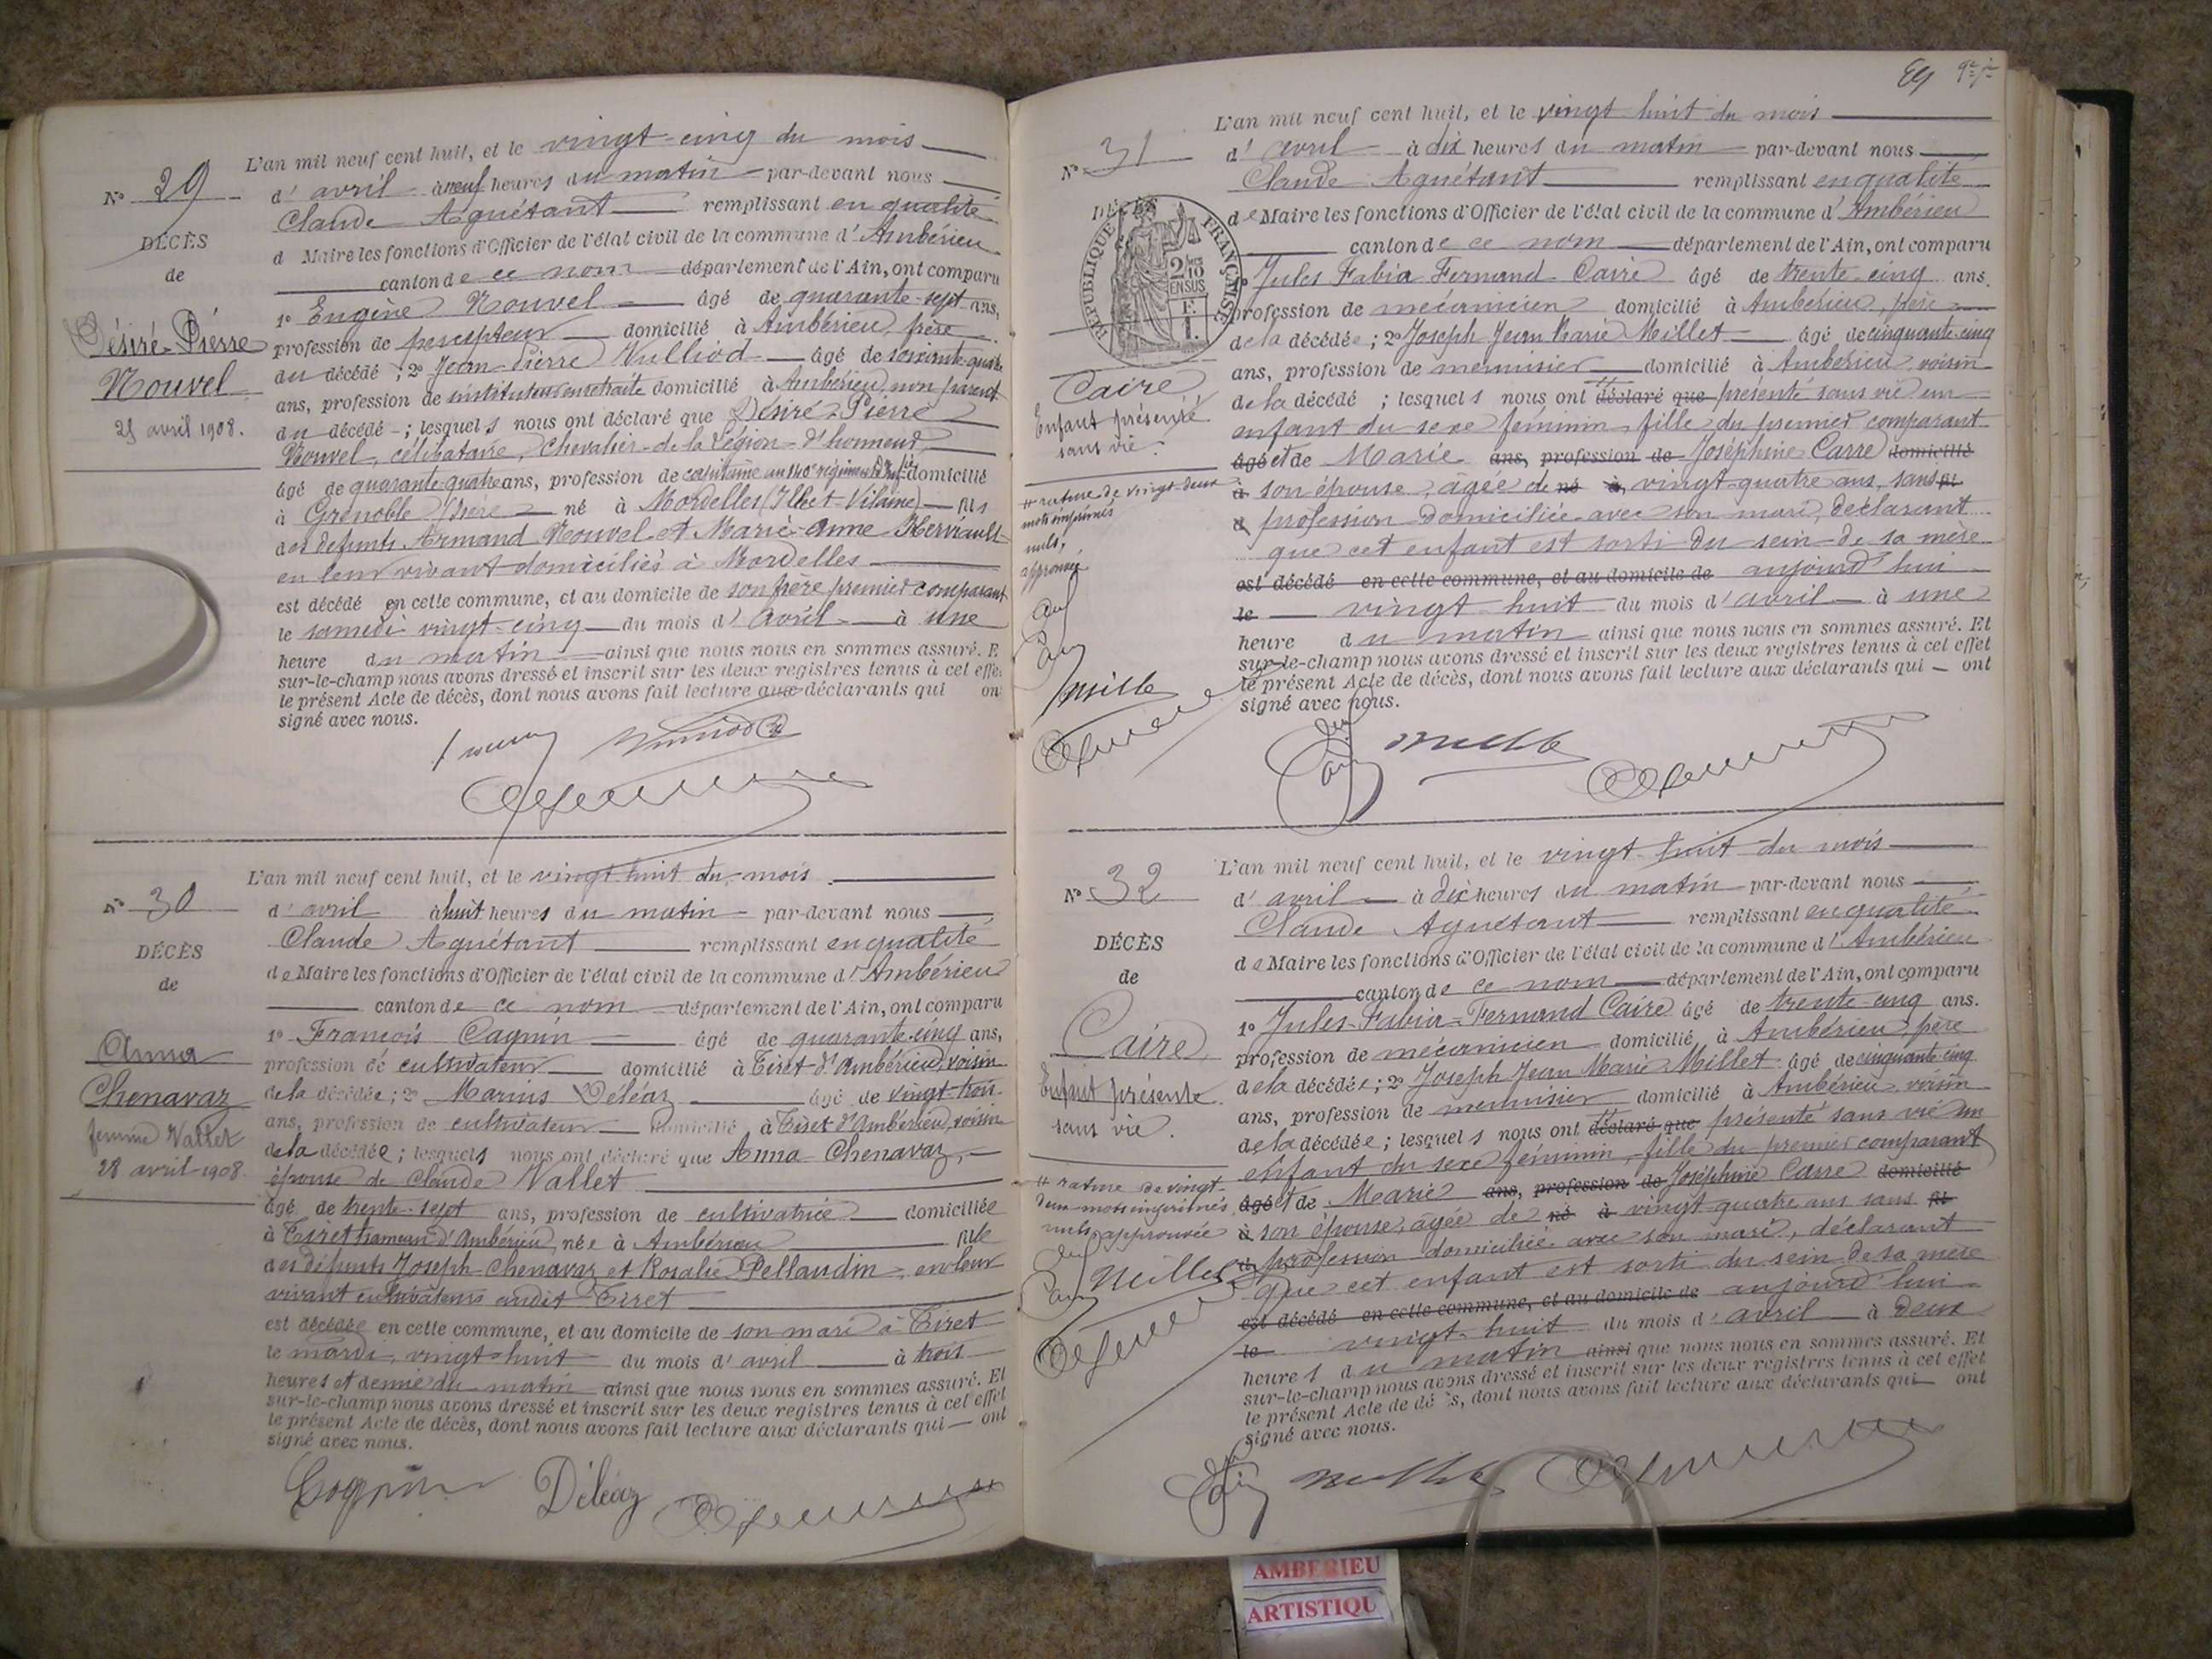 N° 29
DÉCÈS
de
Désiré-Pierre
Nouvel
25 avril 1908.
L'an mil neuf cent huit, et le vingt-cinq du mois
d'avril à neuf heures du matin par-devant nous
Claude Aguétant remplissant en qualité
d Maire les fonctions d'Officier de l'état civil de la commune d'Ambérieu
canton de ce nom département de l'Ain, ont comparu
1° Eugène Nouvel âgé de quarante-sept ans,
profession de percepteur domicilié à Ambérieu, frère
du décédé ; 2° Jean-Pierre Vulliod âgé de soixante-quatre
ans, profession de instituteur en retraite domicilié à Ambérieu, non parent
du décédé ; lesquels nous ont déclaré que Désiré-Pierre
Nouvel, célibataire, Chevalier de la Légion d'honneur,
âgé de quarante-quatre ans, profession de capitaine au 140e régiment d'inf. domicilié
à Grenoble (Isère) né à Mordelles (Ille et Vilaine) fils
des défunts Armand Nouvel et Marie-Anne Herviault
en leur vivant domiciliés à Mordelles
est décédé en cette commune, et au domicile de son frère premier comparant
le samedi vingt-cinq du mois d'avril à une
heure du matin ainsi que nous nous en sommes assuré. E
sur-le-champ nous avons dressé et inscrit sur les deux registres tenus à cet effe
le présent Acte de décès, dont nous avons fait lecture aux déclarants qui on
signé avec nous.
N° 30
DÉCÈS
de
Anna
Chenavaz
femme Vallet
28 avril 1908.
L'an mil neuf cent huit, et le vingt huit du mois
d'avril à huit heures du matin par-devant nous
Claude Aguétant remplissant en qualité
de Maire les fonctions d'Officier de l'état civil de la commune d'Ambérieu
canton de ce nom département de l'Ain, ont comparu
1° François Cagnin âgé de quarante-cinq ans,
profession de cultivateur domicilié à Tiret d'Ambérieu, voisin
de la décédée ; 2° Marius Déléaz âgé de vingt-trois
ans, profession de cultivateur domicilié à Tiret d'Ambérieu, voisin
de la décédée ; lesquels nous ont déclaré que Anna Chenavaz,
épouse de Claude Vallet
âgé de trente-sept ans, profession de cultivatrice domiciliée
à Tiret hameau d'Ambérieu, née à Ambérieu fille
des défunts Joseph Chenavaz et Rosalie Pellaudin, en leur
vivant cultivateurs audit Tiret
est décédée en cette commune, et au domicile de son mari à Tiret
le mardi, vingt-huit du mois d'avril à trois
heures et demie du matin ainsi que nous nous en sommes assuré. Et
sur-le-champ nous avons dressé et inscrit sur les deux registres tenus à cet effet
le présent Acte de décès, dont nous avons fait lecture aux déclarants qui ont
signé avec nous.
Cagnin Déléaz
N° 31
RÉPUBLIQUE FRANÇAISE
2/10 EN SUS
Caire
Enfant présenté
sans vie.
rature de vingt-deux
mots imprimés
nuls,
approuvée
Millet
L'an mil neuf cent huit, et le vingt huit du mois
d'avril à dix heures du matin par-devant nous
Claude Aguétant remplissant en qualité
de Maire les fonctions d'Officier de l'état civil de la commune d'Ambérieu
canton de ce nom département de l'Ain, ont comparu
Jules Fabia Fernand Caire âgé de trente-cinq ans.
profession de mécanicien domicilié à Ambérieu, père
de la décédée ; 2° Joseph Jean Marie Millet âgé de cinquante-cinq
ans, profession de menuisier domicilié à Ambérieu, voisin
de la décédé ; lesquels nous ont déclaré que présenté sans vie un
enfant du sexe féminin, fille du premier comparant
âgé et de Marie ans, profession de Joséphine Carre domicilié
à son épouse, âgée de né à vingt-quatre ans, sans fil
d profession domiciliée avec son mari, déclarant
que cet enfant est sorti du sein de sa mère
est décédé en cette commune, et au domicile de aujourd'hui
le vingt-huit du mois d'avril à une
heure du matin ainsi que nous nous en sommes assuré. Et
sur-le-champ nous avons dressé et inscrit sur les deux registres tenus à cet effet
le présent Acte de décès, dont nous avons fait lecture aux déclarants qui ont
signé avec nous.
Millet
N° 32
DÉCÈS
de
Caire
Enfant présenté
sans vie.
rature de vingt
deux mots imprimés
nuls approuvée
Millet
L'an mil neuf cent huit, et le vingt-huit du mois
d'avril à dix heures du matin par-devant nous
Claude Aguétant remplissant en qualité
de Maire les fonctions d'Officier de l'état civil de la commune d'Ambérieu
canton de ce nom département de l'Ain, ont comparu
1° Jules-Fabia-Fernand Caire âgé de trente-cinq ans.
profession de mécanicien domicilié à Ambérieu, père
de la décédée ; 2° Joseph Jean Marie Millet âgé de cinquante-cinq
ans, profession de menuisier domicilié à Ambérieu, voisin
de la décédée ; lesquels nous ont déclaré que présenté sans vie un
enfant du sexe féminin, fille du premier comparant
âgé et de Marie ans, profession de Joséphine Carre domicilié
à son épouse, âgée de né à vingt-quatre ans sans fil
d profession domiciliée avec son mari, déclarant
que cet enfant est sorti du sein de sa mère
est décédé en cette commune, et au domicile de aujourd'hui
le vingt-huit du mois d'avril à deux
heures du matin ainsi que nous nous en sommes assuré. Et
sur-le-champ nous avons dressé et inscrit sur les deux registres tenus à cet effet
le présent Acte de dé s, dont nous avons fait lecture aux déclarants qui ont
signé avec nous.
Millet
AMBERIEU
ARTISTIQU